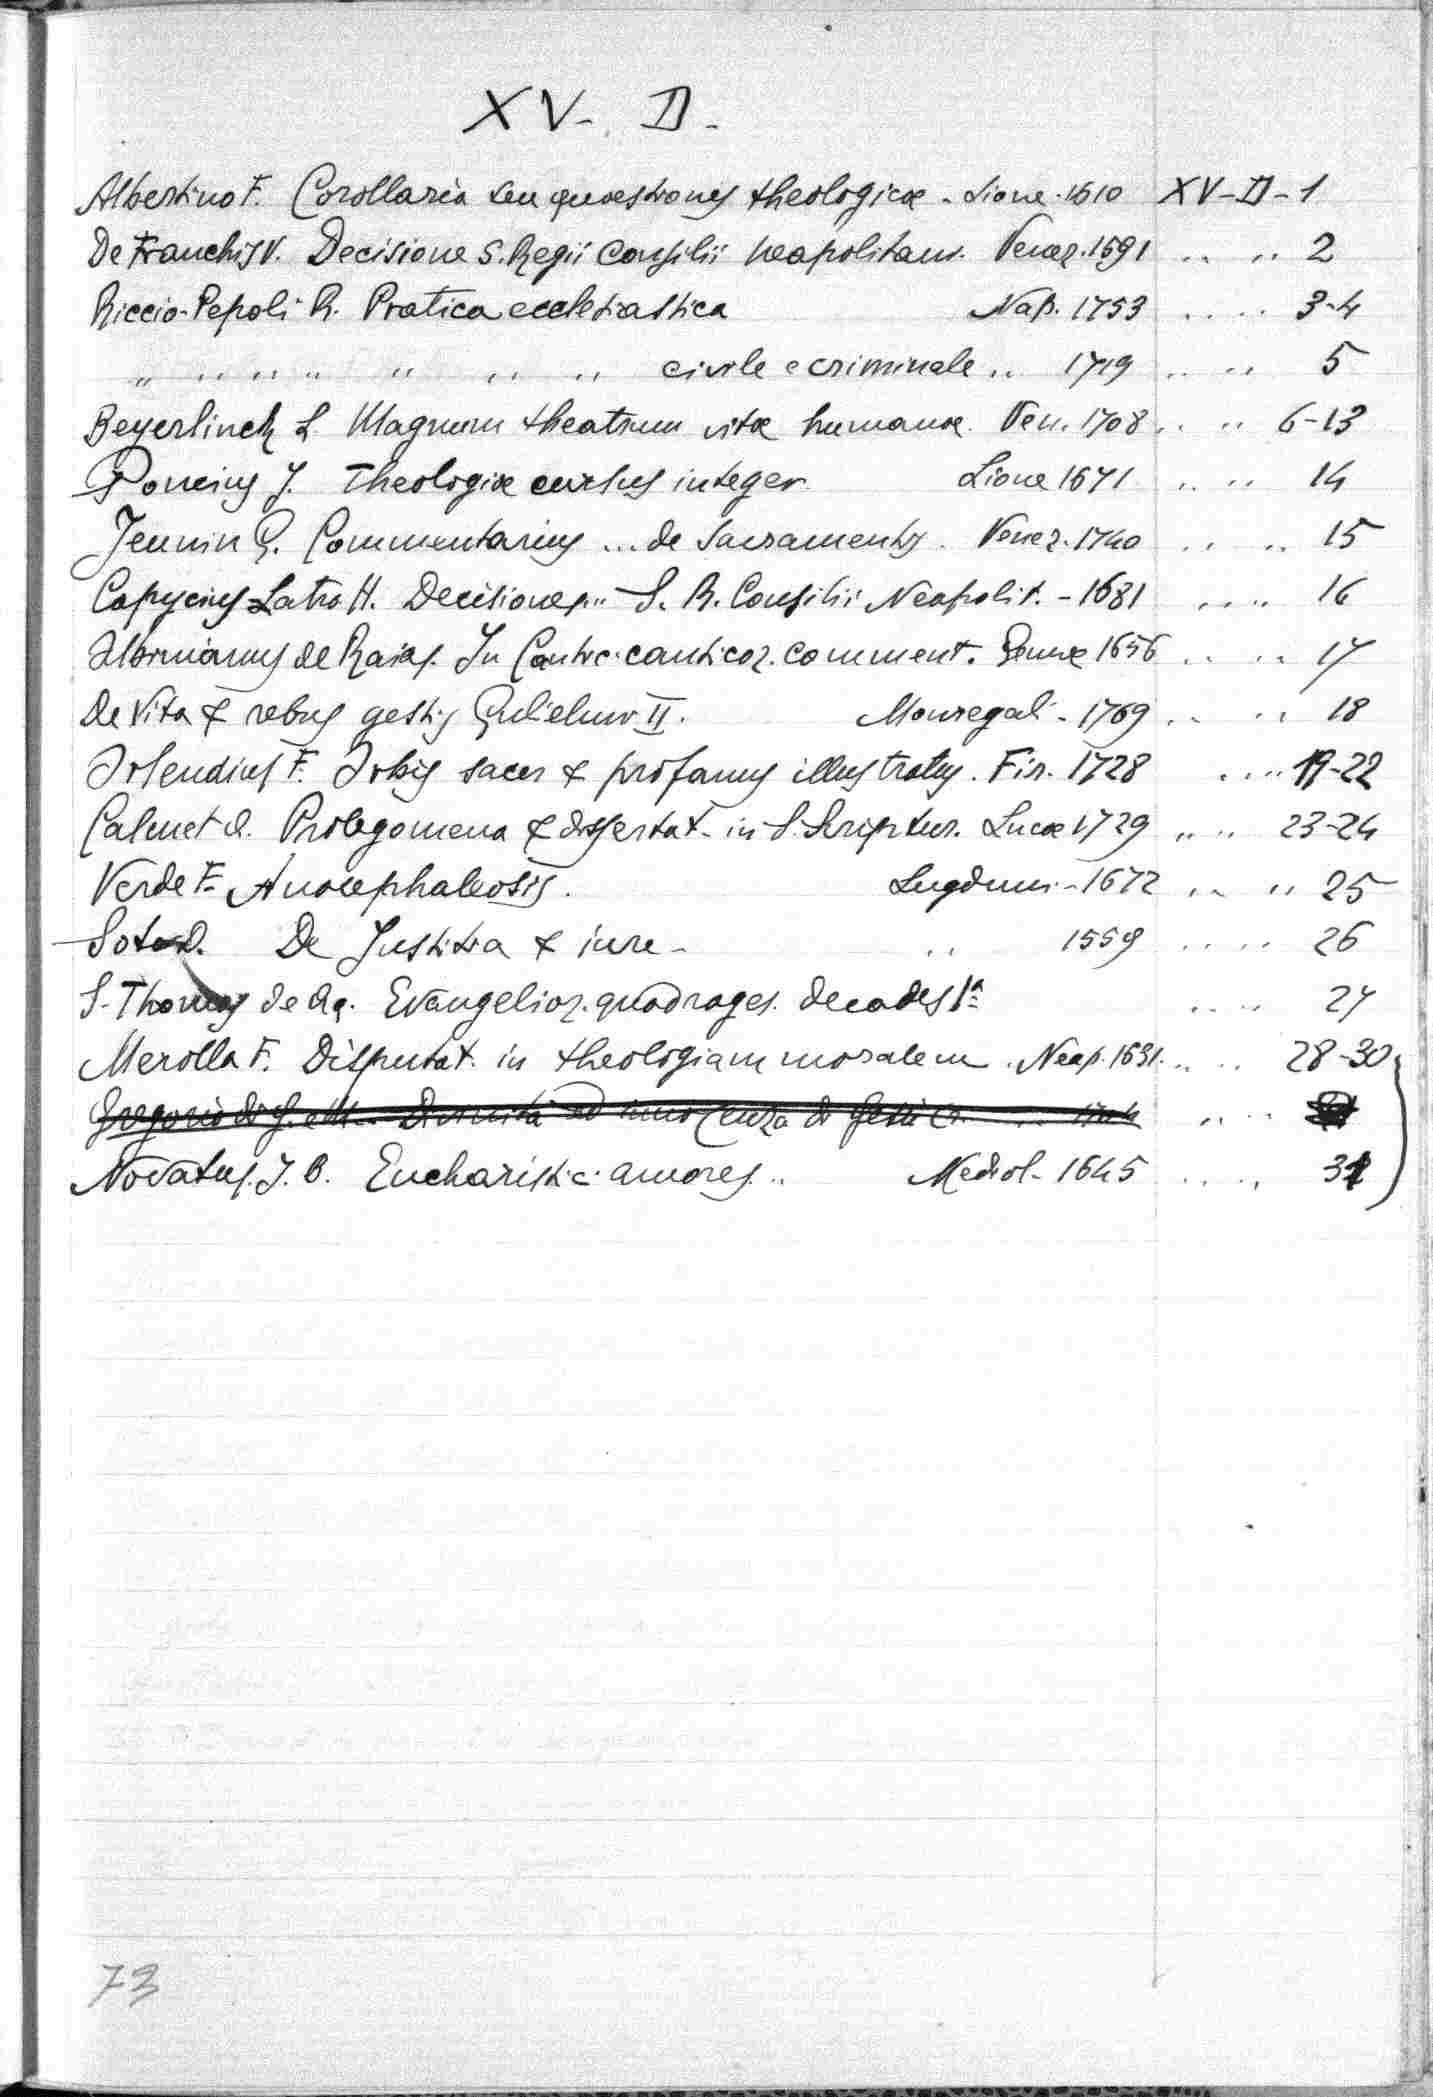 XV - D -
Albertino F. Corollaria seu quaestiones theologicae - Lione - 1610 XV - D - 1
De Franchis V. Decisione S. Regii Consilii neapolitani. Venez. 1591 " " 2
Riccio-Pepoli R. Pratica ecclesiastica Nap. 1753 " " 3-4
" " " " " " " civile e criminale " 1719 " " 5
Beyerlinck L. Magnum theatrum vitae humanae. Ven. 1708 " " 6-13
Poncius J. Theologiae cursus integer Lione 1671 " " 14
Juenin G. Commentarius ... de Sacramentis. Venez. 1740 " " 15
Capycius Latro H. Decisiones " S. R. Consilii Neapolit. - 1681 " " 16
de Rajas. In Cantic. canticor. comment. Genuae 1656 " " 17
De Vita & rebus gestis Gulielmi II. Monregali - 1769 " " 18
Orlendius F. Orbis sacer & profanus illustratus. Fir. 1728 " " 19-22
Calmet A. Prolegomena & dissertat. in S. Scriptur. Lucae 1729 " " 23-24
Verde F. Anacephaleosis. Lugduni - 1672 " " 25
Soto D. De Justitia & iure - " 1559 " " 26
S. Thomas de Aq. Evangelior. quadrages. decades 1ª " " 27
Merolla F. Disputat. in theologiam moralem. Neap. 1631. " " 28-30
Gregorio di S. Divinità ed innocenza di Gesù Cr. " " "
Novatus. J. B. Eucharistici amores. " Mediol - 1645 " " 31
73